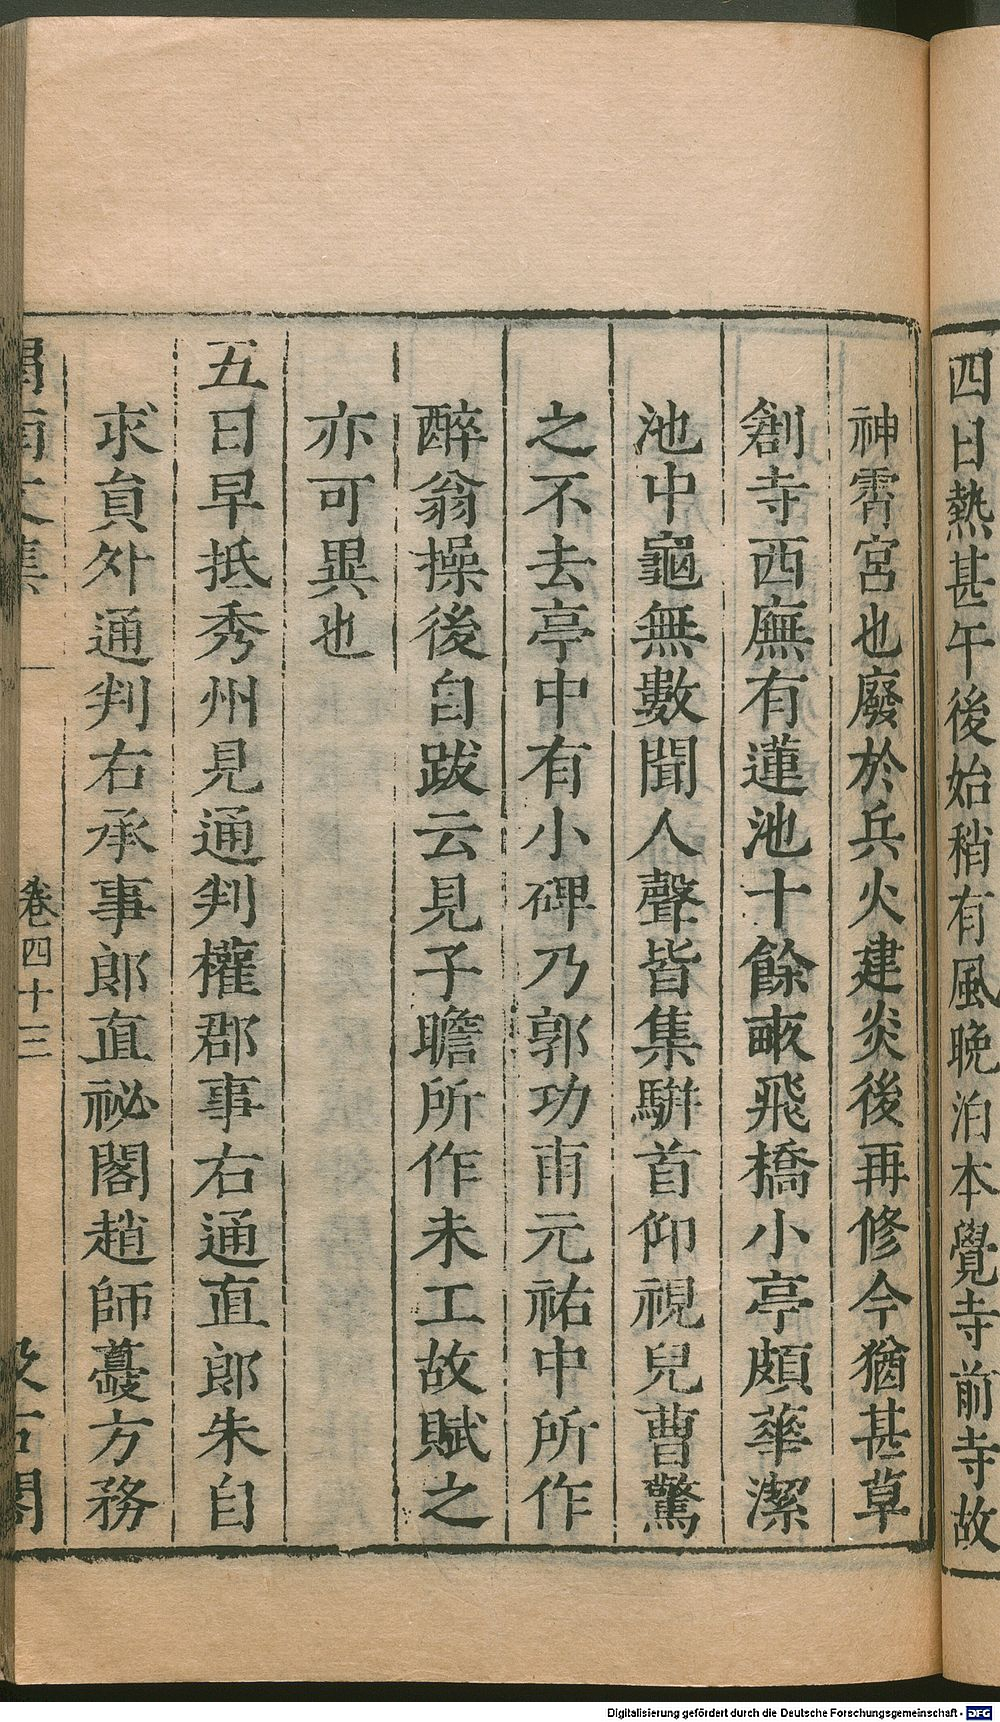 四日熱甚午後始稍有風晚泊本覺寺前寺故
神霄宮也廢於兵火建炎後再修今猶甚草
創寺西廡有蓮池十餘畞飛橋小亭頗華潔
池中龜無數聞人聲皆集駢首仰視兒曹驚
之不去亭中有小碑乃郭功甫元祐中所作
醉翁操後自跋云見子瞻所作未工故賦之
亦可異也
五日早抵秀州見通判權郡事右通直郎朱自
求貟外通判右承事郎直祕閣趙師夔方務
卷四十三
Digitalisierung gefördert durch die Deutsche Forschungsgemeinschaft - DFG